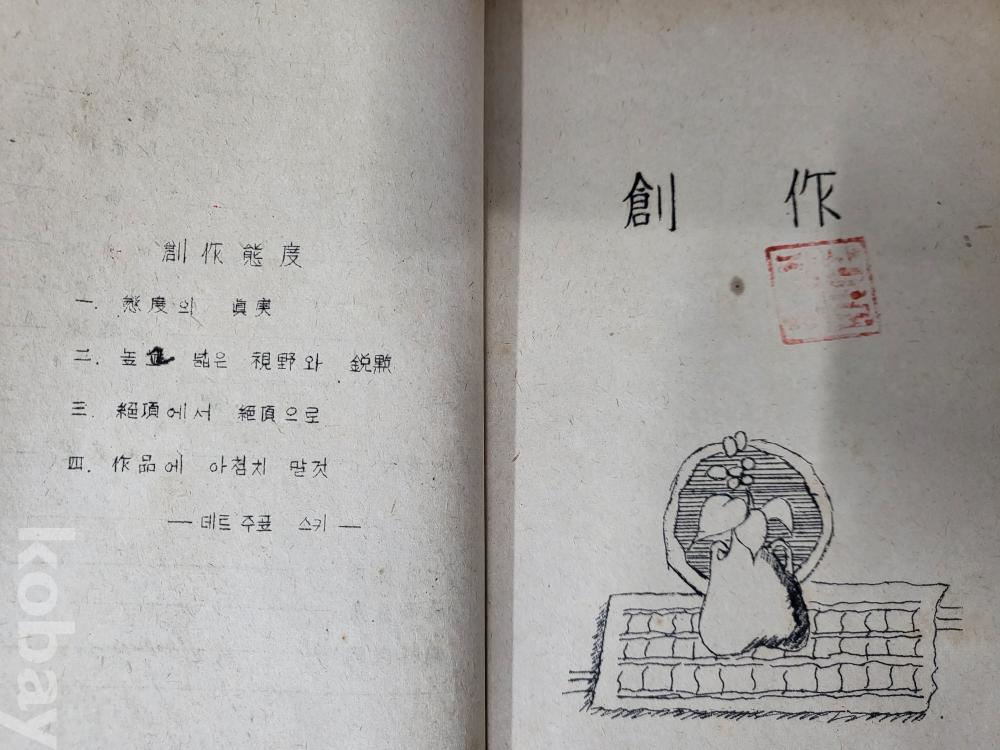 創作態度
一. 態度의 眞実
二. 높 넓은 視野와 鋭
三. 絕頂에서 絕頂으로
四. 作品에 아첨치 말것
— 데트 주표 스키 —
創 作
kobay